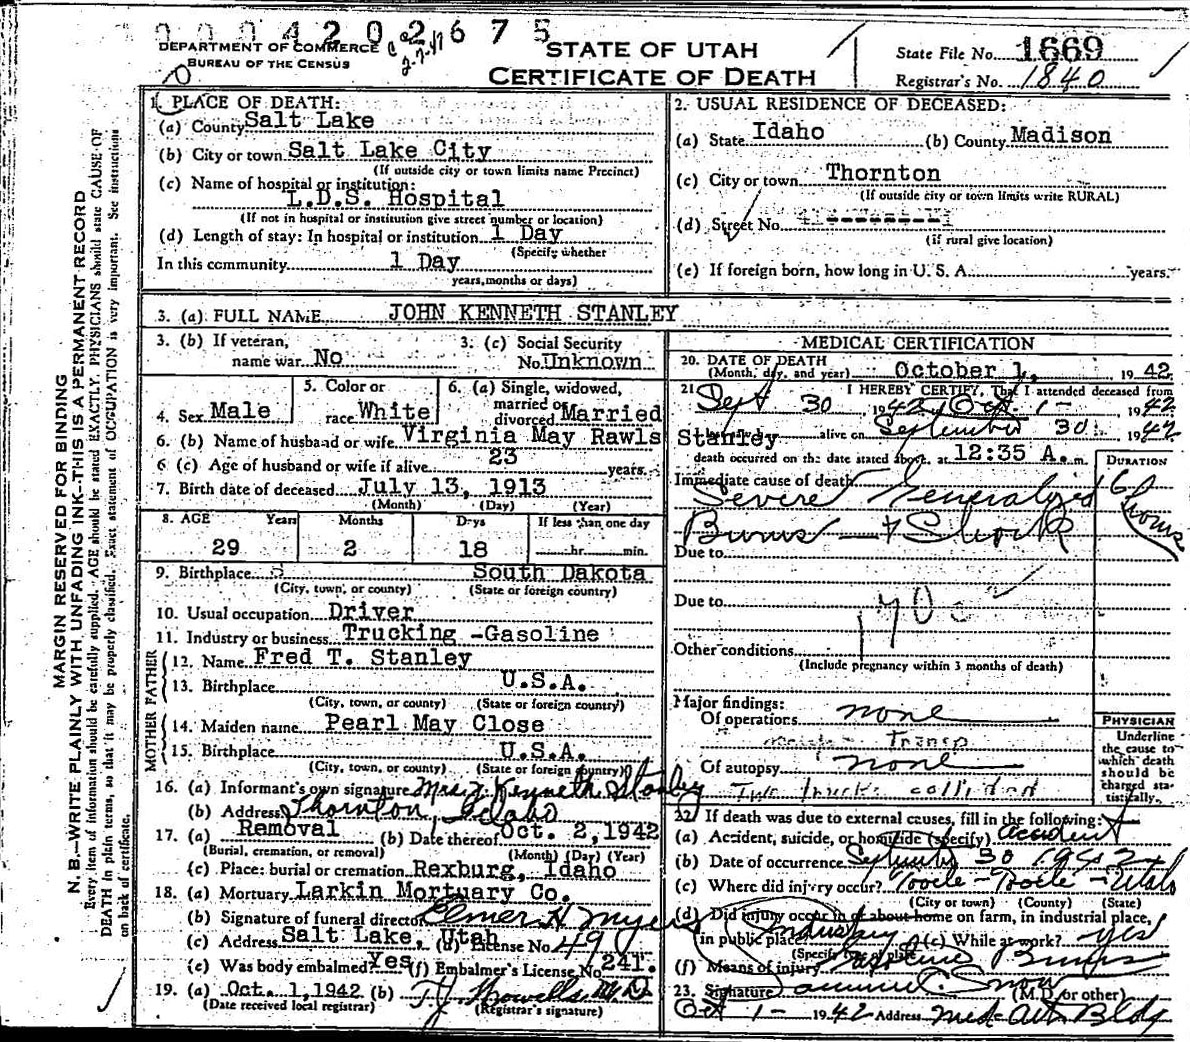 0004202675
DEPARTMENT OF COMMERCE
BUREAU OF THE CENSUS
2-7-47
STATE OF UTAH
CERTIFICATE OF DEATH
State File No. 1669
Registrar's No. 1840
1. PLACE OF DEATH:
(a) County Salt Lake
(b) City or town Salt Lake City
(If outside city or town limits name Precinct)
(c) Name of hospital or institution:
L.D.S. Hospital
(If not in hospital or institution give street number or location)
(d) Length of stay: In hospital or institution 1 Day
(Specify whether
In this community 1 Day
years, months or days)
2. USUAL RESIDENCE OF DECEASED:
(a) State Idaho (b) County Madison
(c) City or town Thornton
(If outside city or town limits write RURAL)
(d) Street No. ---------
(if rural give location)
(e) If foreign born, how long in U. S. A. years.
3. (a) FULL NAME JOHN KENNETH STANLEY
3. (b) If veteran, name war No
3. (c) Social Security No. Unknown
4. Sex Male
5. Color or race White
6. (a) Single, widowed, married or divorced Married
6. (b) Name of husband or wife Virginia May Rawls Stanley
6 (c) Age of husband or wife if alive 23 years.
7. Birth date of deceased July 13, 1913
(Month) (Day) (Year)
8. AGE Years Months Days If less than one day
29 2 18 hr. min.
9. Birthplace South Dakota
(City, town, or county) (State or foreign country)
10. Usual occupation Driver
11. Industry or business Trucking -Gasoline
FATHER
12. Name Fred T. Stanley
13. Birthplace U.S.A.
(City, town, or county) (State or foreign country)
MOTHER
14. Maiden name Pearl May Close
15. Birthplace U.S.A.
(City, town, or county) (State or foreign country)
16. (a) Informant's own signature Mrs. J. Kenneth Stanley
(b) Address Thornton, Idaho
17. (a) Removal (b) Date thereof Oct. 2, 1942
(Burial, cremation, or removal) (Month) (Day) (Year)
(c) Place: burial or cremation Rexburg, Idaho
18. (a) Mortuary Larkin Mortuary Co.
(b) Signature of funeral director Elmer H Myers
(c) Address Salt Lake, Utah (d) License No. 49
(e) Was body embalmed? Yes (f) Embalmer's License No. 241.
19. (a) Oct. 1, 1942 (b) T.J. Howells M.D.
(Date received local registrar) (Registrar's signature)
MEDICAL CERTIFICATION
20. DATE OF DEATH
(Month, day, and year) October 1, 1942
21. I HEREBY CERTIFY, That I attended deceased from
Sept 30 1942, Oct. 1- 1942
alive on September 30 1942
death occurred on the date stated above, at 12:35 A. m.
DURATION
Immediate cause of death
Severe Generalized
Burns + Shock
6 hours
Due to
Due to
170c
Other conditions
(Include pregnancy within 3 months of death)
Major findings:
Of operations none
Transp
Of autopsy none
Two trucks collided
PHYSICIAN
Underline
the cause to
which death
should be
charged sta-
tistically.
22. If death was due to external causes, fill in the following:
(a) Accident, suicide, or homicide (specify) accident
(b) Date of occurrence September 30 1942
(c) Where did injury occur? Tooele - Tooele - Utah
(City or town) (County) (State)
(d) Did injury occur in or about home on farm, in industrial place,
in public place? Industry (e) While at work? yes
(Specify type of place)
(f) Means of injury Gasoline Burns
23. Signature Samuel C. Snow
(M.D. or other)
Oct 1- 1942 Address Med-Art Bldg
MARGIN RESERVED FOR BINDING
N. B.—WRITE PLAINLY WITH UNFADING INK—THIS IS A PERMANENT RECORD
Every item of information should be carefully supplied. AGE should be stated EXACTLY. PHYSICIANS should state CAUSE OF
DEATH in plain terms, so that it may be properly classified. Exact statement of OCCUPATION is very important. See instructions
on back of certificate.